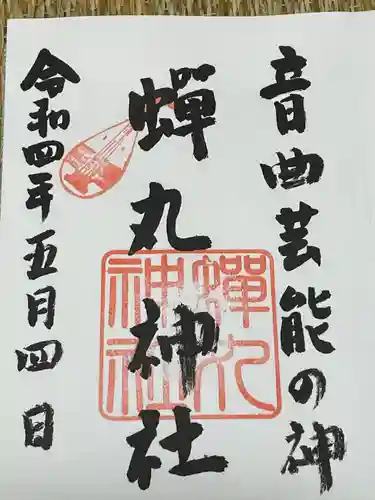 音曲芸能の神
蝉丸神社
令和四年五月四日
蝉丸
神社